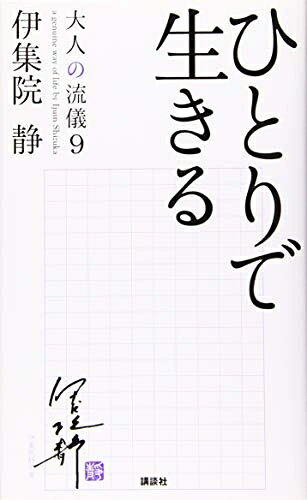 ひとりで
生きる
大人の流儀9
a genuine way of life by Ijuin Shizuka
伊集院 静
伊集院静
静
講談社